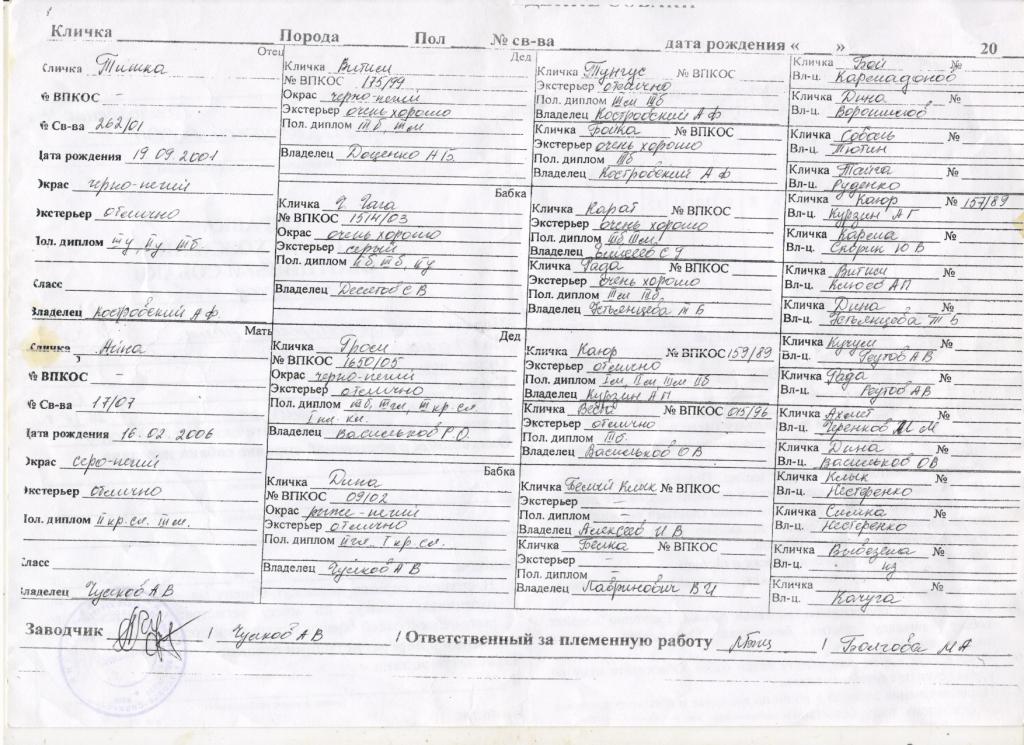 Кличка Порода Пол № св-ва дата рождения « » 20
Отец
Кличка Тишка
№ ВПКОС –
№ Св-ва 262/01
Дата рождения 19 09 2001
Окрас черно-пегий
Экстерьер отлично
Пол. диплом
Класс
Владелец Костровский А Ф
Мать
Кличка Айна
№ ВПКОС –
№ Св-ва 17/07
Дата рождения 16. 02. 2006
Окрас серо-пегий
Экстерьер отлично
Пол. диплом
Класс
Владелец Чулков А В
Дед
Кличка Витим
№ ВПКОС 175/99
Окрас черно-пегий
Экстерьер очень хорошо
Пол. диплом
Владелец Доценко А Б.
Бабка
Кличка Ч. Гага
№ ВПКОС 1514/03
Окрас очень хорошо
Экстерьер серый
Пол. диплом
Владелец Десятов С В
Дед
Кличка Гром
№ ВПКОС 1650/05
Окрас черно-пегий
Экстерьер отлично
Пол. диплом
Владелец Васильков Р.О.
Бабка
Кличка Дина
№ ВПКОС 09/02
Окрас рыже-пегий
Экстерьер отлично
Пол. диплом
Владелец Чулков А В
Кличка Тунгус № ВПКОС
Экстерьер отлично
Пол. диплом
Владелец Костровский А Ф
Кличка Бойка № ВПКОС
Экстерьер очень хорошо
Пол. диплом
Владелец Костровский А Ф
Кличка Карат № ВПКОС
Экстерьер очень хорошо
Пол. диплом
Владелец
Кличка Рада № ВПКОС
Экстерьер очень хорошо
Пол. диплом
Владелец Устьянцева Т Б
Кличка Каюр № ВПКОС 159/89
Экстерьер отлично
Пол. диплом
Владелец Курзин А Г
Кличка Веста № ВПКОС 015/96
Экстерьер отлично
Пол. диплом
Владелец Васильков О В
Кличка Белый Клык № ВПКОС
Экстерьер –
Пол. диплом –
Владелец Алексеев И В
Кличка Белка № ВПКОС
Экстерьер –
Пол. диплом –
Владелец Лавринович В И
Кличка Бой №
Вл-ц. Кармадонов
Кличка Дина №
Вл-ц. Ворошилов
Кличка Соболь №
Вл-ц. Тютин
Кличка Тайга №
Вл-ц. Руденко
Кличка Каюр № 157/89
Вл-ц. Курзин А Г
Кличка Карма №
Вл-ц. Скорик Ю В
Кличка Витим №
Вл-ц. АП
Кличка Дина №
Вл-ц. Устьянцева Т Б
Кличка Кучум №
Вл-ц. Реутов А В
Кличка Рада №
Вл-ц. Реутов АВ
Кличка Ахмет №
Вл-ц. Черенков М М
Кличка Дина №
Вл-ц. Васильков ОВ
Кличка Клык №
Вл-ц. Нестеренко
Кличка Симка №
Вл-ц. Нестеренко
Кличка Вывезена №
Вл-ц. из
Кличка №
Вл-ц. Качуга
Заводчик / Чулков А В / Ответственный за племенную работу / Болгова М А